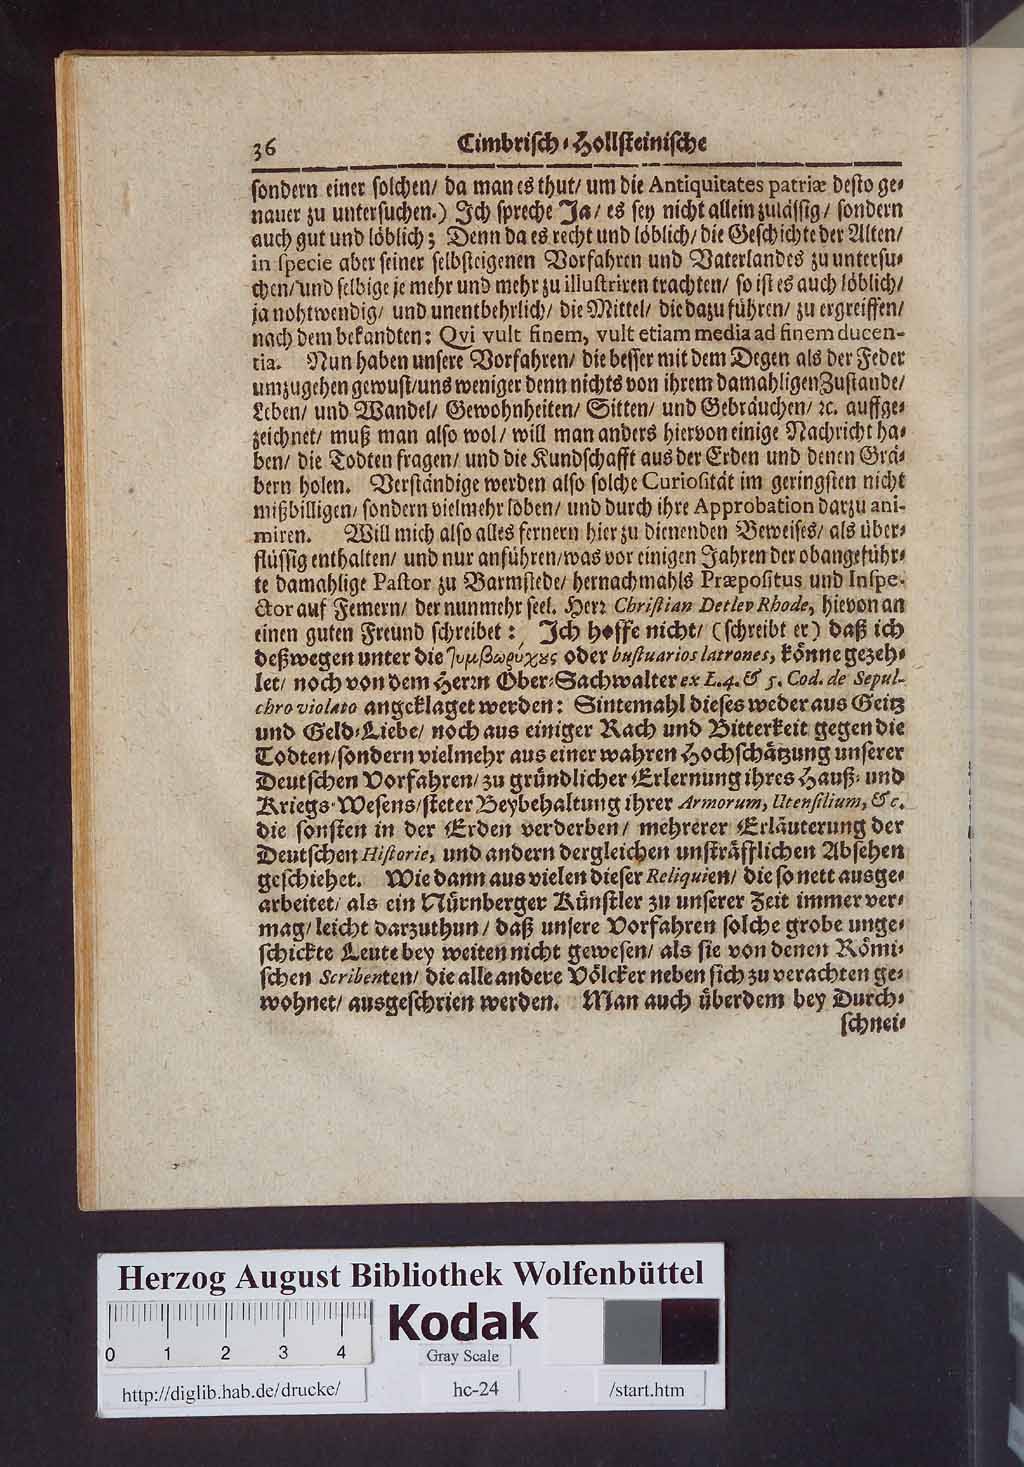 36 Cimbrisch-Hollsteinische
sondern einer solchen/ da man es thut/ um die Antiquitates patriæ desto ge-
nauer zu untersuchen.) Ich spreche Ja/ es sey nicht allein zulässig/ sondern
auch gut und löblich; Denn da es recht und löblich/ die Geschichte der Alten/
in specie aber seiner selbsteigenen Vorfahren und Vaterlandes zu untersu-
chen/ und selbige je mehr und mehr zu illustriren trachten/ so ist es auch löblich/
ja nohtwendig/ und unentbehrlich/ die Mittel/ die dazu führen/ zu ergreiffen/
nach dem bekandten: Qvi vult finem, vult etiam media ad finem ducen-
tia. Nun haben unsere Vorfahren/ die besser mit dem Degen als der Feder
umzugehen gewust/ uns weniger denn nichts von ihrem damahligen Zustande/
Leben/ und Wandel/ Gewohnheiten/ Sitten/ und Gebräuchen/ ꝛc. auffge-
zeichnet/ muß man also wol/ will man anders hiervon einige Nachricht ha-
ben/ die Todten fragen/ und die Kundschafft aus der Erden und denen Grä-
bern holen. Verständige werden also solche Curiosität im geringsten nicht
mißbilligen/ sondern vielmehr loben/ und durch ihre Approbation darzu ani-
miren. Will mich also alles fernern hier zu dienenden Beweises/ als über-
flüssig enthalten/ und nur anführen/ was vor einigen Jahren der obangeführ-
te damahlige Pastor zu Barmstede/ hernachmahls Præpositus und Inspe-
ctor auf Femern/ der nunmehr seel. Herr Christian Detlev Rhode, hievon an
einen guten Freund schreibet: Ich hoffe nicht/ (schreibt er) daß ich
deßwegen unter die τυμβωρύχους oder bustuarios latrones, könne gezeh-
let/ noch von dem Herrn Ober-Sachwalter ex L. 4. & 5. Cod. de Sepul-
chro violato angeklaget werden: Sintemahl dieses weder aus Geitz
und Geld-Liebe/ noch aus einiger Rach und Bitterkeit gegen die
Todten/ sondern vielmehr aus einer wahren Hochschätzung unserer
Deutschen Vorfahren/ zu gründlicher Erlernung ihres Hauß- und
Kriegs-Wesens/ steter Beybehaltung ihrer Armorum, Utensilium, &c.
die sonsten in der Erden verderben/ mehrerer Erläuterung der
Deutschen Historie, und andern dergleichen unsträfflichen Absehen
geschiehet. Wie dann aus vielen dieser Reliquien/ die so nett ausge-
arbeitet/ als ein Nürnberger Künstler zu unserer Zeit immer ver-
mag/ leicht darzuthun/ daß unsere Vorfahren solche grobe unge-
schickte Leute bey weiten nicht gewesen/ als sie von denen Römi-
schen Scribenten/ die alle andere Völcker neben sich zu verachten ge-
wohnet/ ausgeschrien werden. Man auch überdem bey Durch-
schnei-
Herzog August Bibliothek Wolfenbüttel
0 1 2 3 4
Kodak
Gray Scale
http://diglib.hab.de/drucke/ hc-24 /start.htm